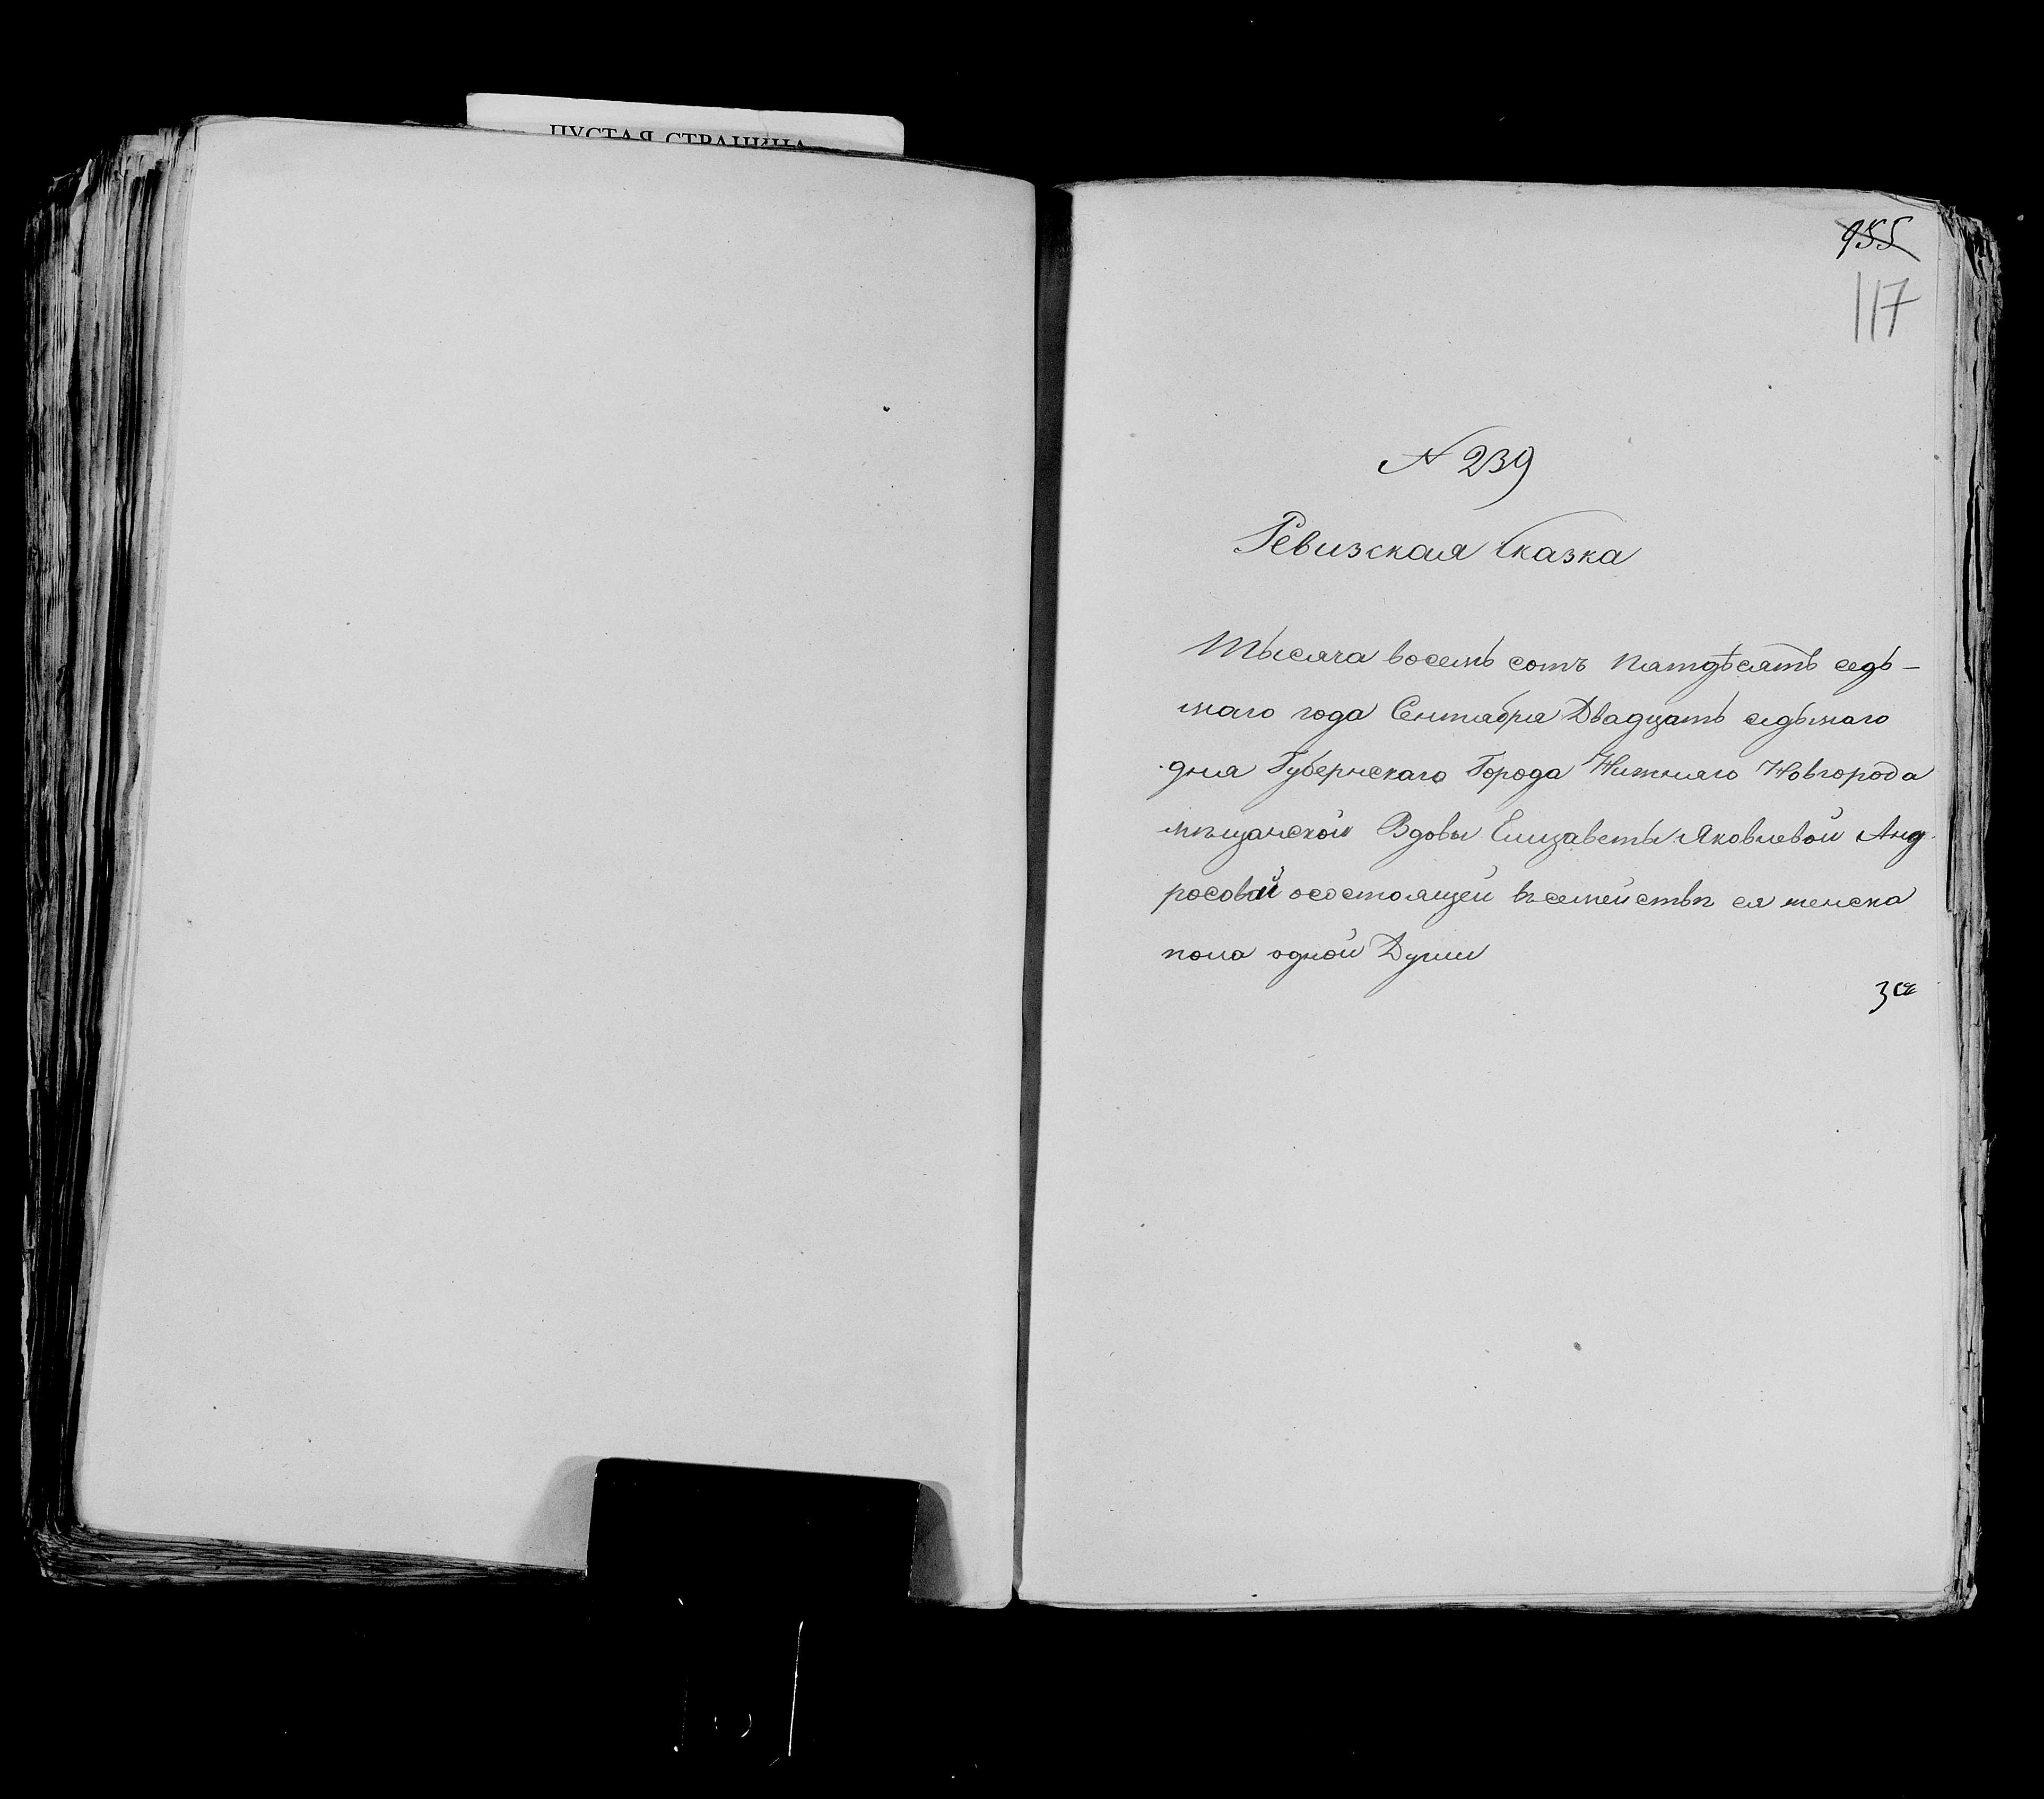 ПУСТАЯ СТРАНИЦА
955
117
N 239
Ревизская Сказка
Тысяча восемь сотъ Пятдѣсятъ седь-
маго года Сентября Двадцать седьмаго
дня Губернскаго Города Нижняго Новгорода
мѣщанской Вдовы Елизаветы Яковлевой Анд
росовой осостоящей въ семействѣ ея женска
пола одной Души